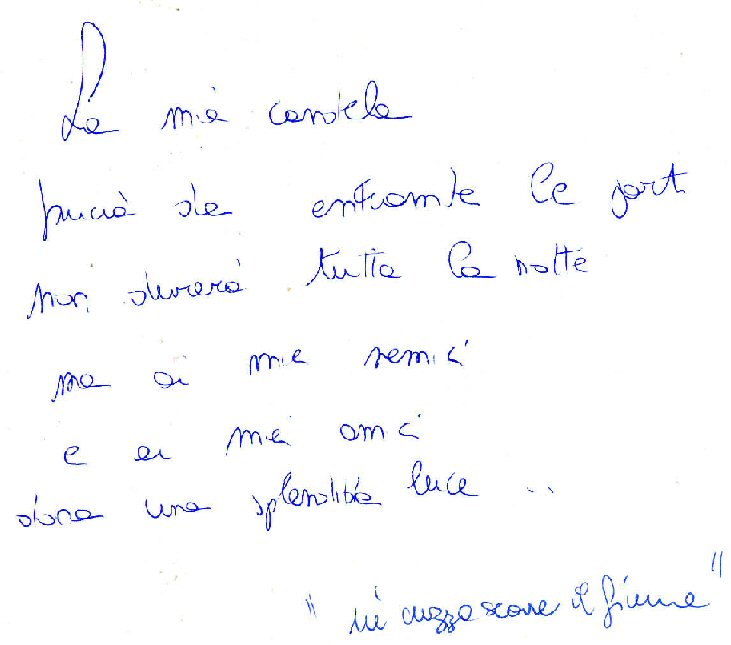 La mia candela
brucia da entrambe le parti
non durerà tutta la notte
ma ai miei nemici
e ai miei amici
dona una splendida luce ..
" in mezzo scorre il fiume "